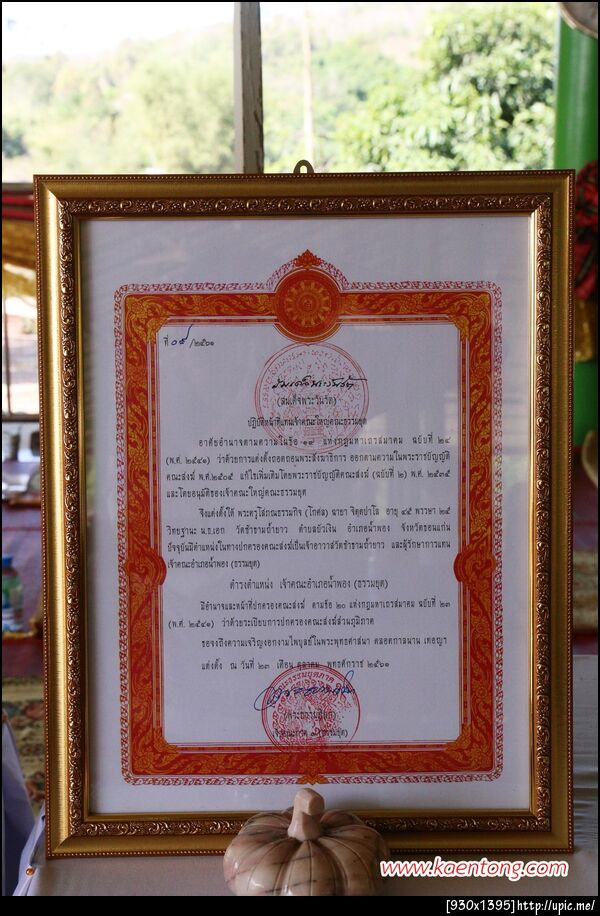 ที่ ๐๕ /๒๕๖๑
สมเด็จพระวันรัต
(สมเด็จพระวันรัต)
ปฏิบัติหน้าที่แทนเจ้าคณะใหญ่คณะธรรมยุต
อาศัยอำนาจตามความในข้อ ๑๙ แห่งกฎมหาเถรสมาคม ฉบับที่ ๒๔
(พ.ศ. ๒๕๔๑) ว่าด้วยการแต่งตั้งถอดถอนพระสังฆาธิการ ออกตามความในพระราชบัญญัติ
คณะสงฆ์ พ.ศ.๒๕๐๕ แก้ไขเพิ่มเติมโดยพระราชบัญญัติคณะสงฆ์ (ฉบับที่ ๒) พ.ศ. ๒๕๓๕
และโดยอนุมัติของเจ้าคณะใหญ่คณะธรรมยุต
จึงแต่งตั้งให้ พระครูโสภณธรรมกิจ (โกศล) ฉายา จิตฺตปาโล อายุ ๔๕ พรรษา ๒๕
วิทยฐานะ น.ธ.เอก วัดซำขามถ้ำยาว ตำบลบัวเงิน อำเภอน้ำพอง จังหวัดขอนแก่น
ปัจจุบันมีตำแหน่งในทางปกครองคณะสงฆ์เป็นเจ้าอาวาสวัดซำขามถ้ำยาว และผู้รักษาการแทน
เจ้าคณะอำเภอน้ำพอง (ธรรมยุต)
ดำรงตำแหน่ง เจ้าคณะอำเภอน้ำพอง (ธรรมยุต)
มีอำนาจและหน้าที่ปกครองคณะสงฆ์ ตามข้อ ๒๐ แห่งกฎมหาเถรสมาคม ฉบับที่ ๒๓
(พ.ศ. ๒๕๔๑) ว่าด้วยระเบียบการปกครองคณะสงฆ์ส่วนภูมิภาค
ขอจงถึงความเจริญงอกงามไพบูลย์ในพระพุทธศาสนา ตลอดกาลนาน เทอญฯ
แต่งตั้ง ณ วันที่ ๒๓ เดือน ตุลาคม พุทธศักราช ๒๕๖๑
เจ้าคณะภาค (ธรรมยุต)
www.kaentong.com
[930x1395]http://upic.me/